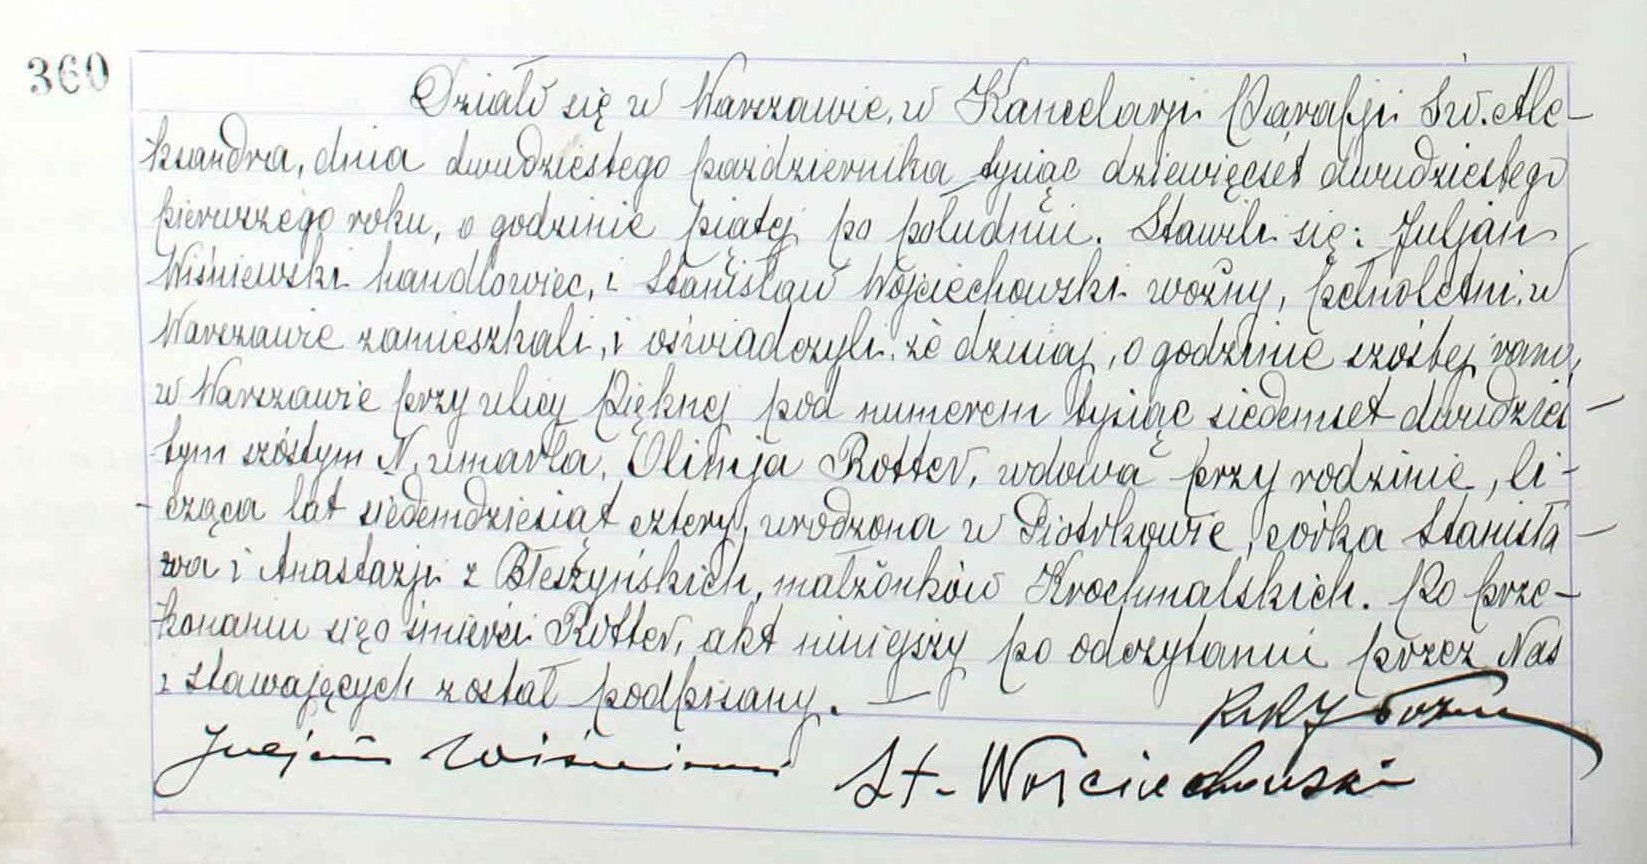 360
Działo się w Warszawie, w Kancelarji Parafji Św. Ale-
ksandra, dnia dwudziestego października tysiąc dziewięćset dwudziestego
pierwszego roku, o godzinie piątej po południu. Stawili się: Juljan
Wiśniewski handlowiec, i Stanisław Wojciechowski woźny, pełnoletni, w
Warszawie zamieszkali, i oświadczyli, że dzisiaj, o godzinie szóstej rano,
w Warszawie przy ulicy Pięknej pod numerem tysiąc siedemset dwudzies-
tym szóstym N, umarła, Olimpja Rotter, wdowa przy rodzinie, li-
-cząca lat siedemdziesiąt cztery, urodzona w Piotrkowie, córka Stanisła-
wa i Anastazji z Błeszyńskich, małżonków Krochmalskich. Po prze-
konaniu się o śmierci Rotter, akt niniejszy po odczytaniu przez Nas
i stawających został podpisany. —
Juljan Wiśniewski St. Wojciechowski